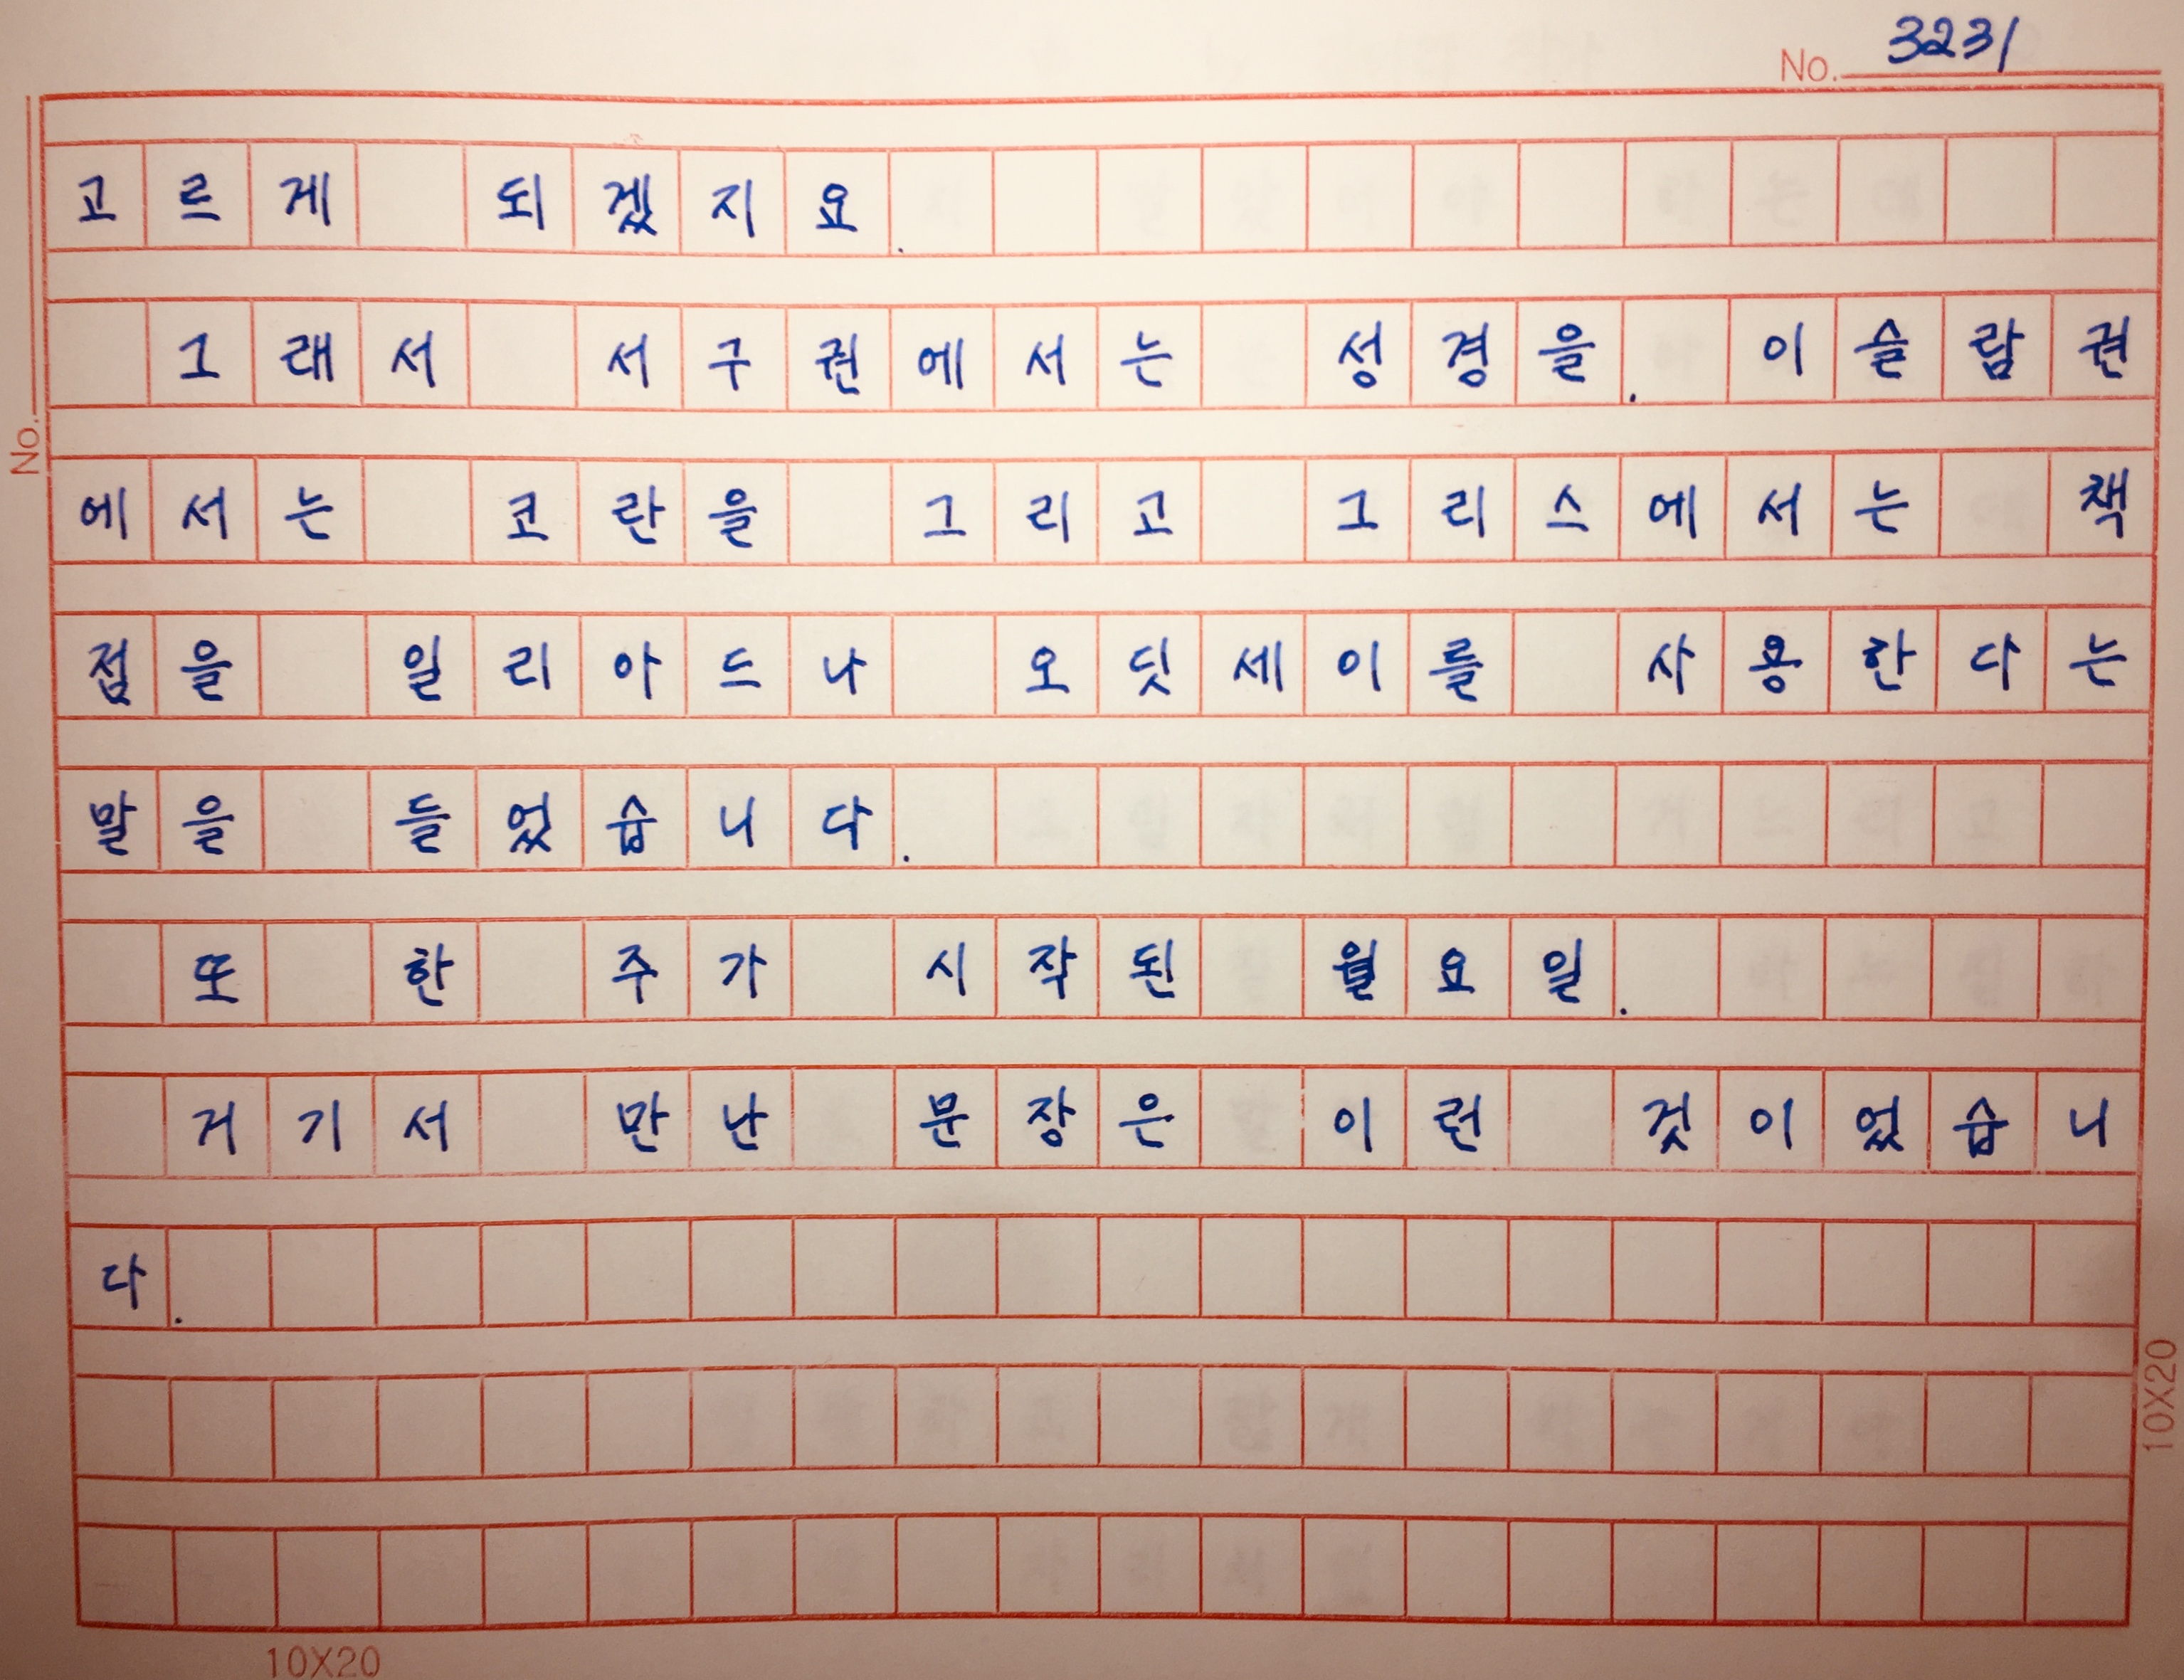 No. 3231
고르게 되겠지요.
그래서 서구권에서는 성경을. 이슬람권
No.
에서는 코란을 그리고 그리스에서는 책
점을 일리아드나 오딧세이를 사용한다는
말을 들었습니다.
또 한 주가 시작된 월요일.
거기서 만난 문장은 이런 것이었습니
다.
10X20
10X20